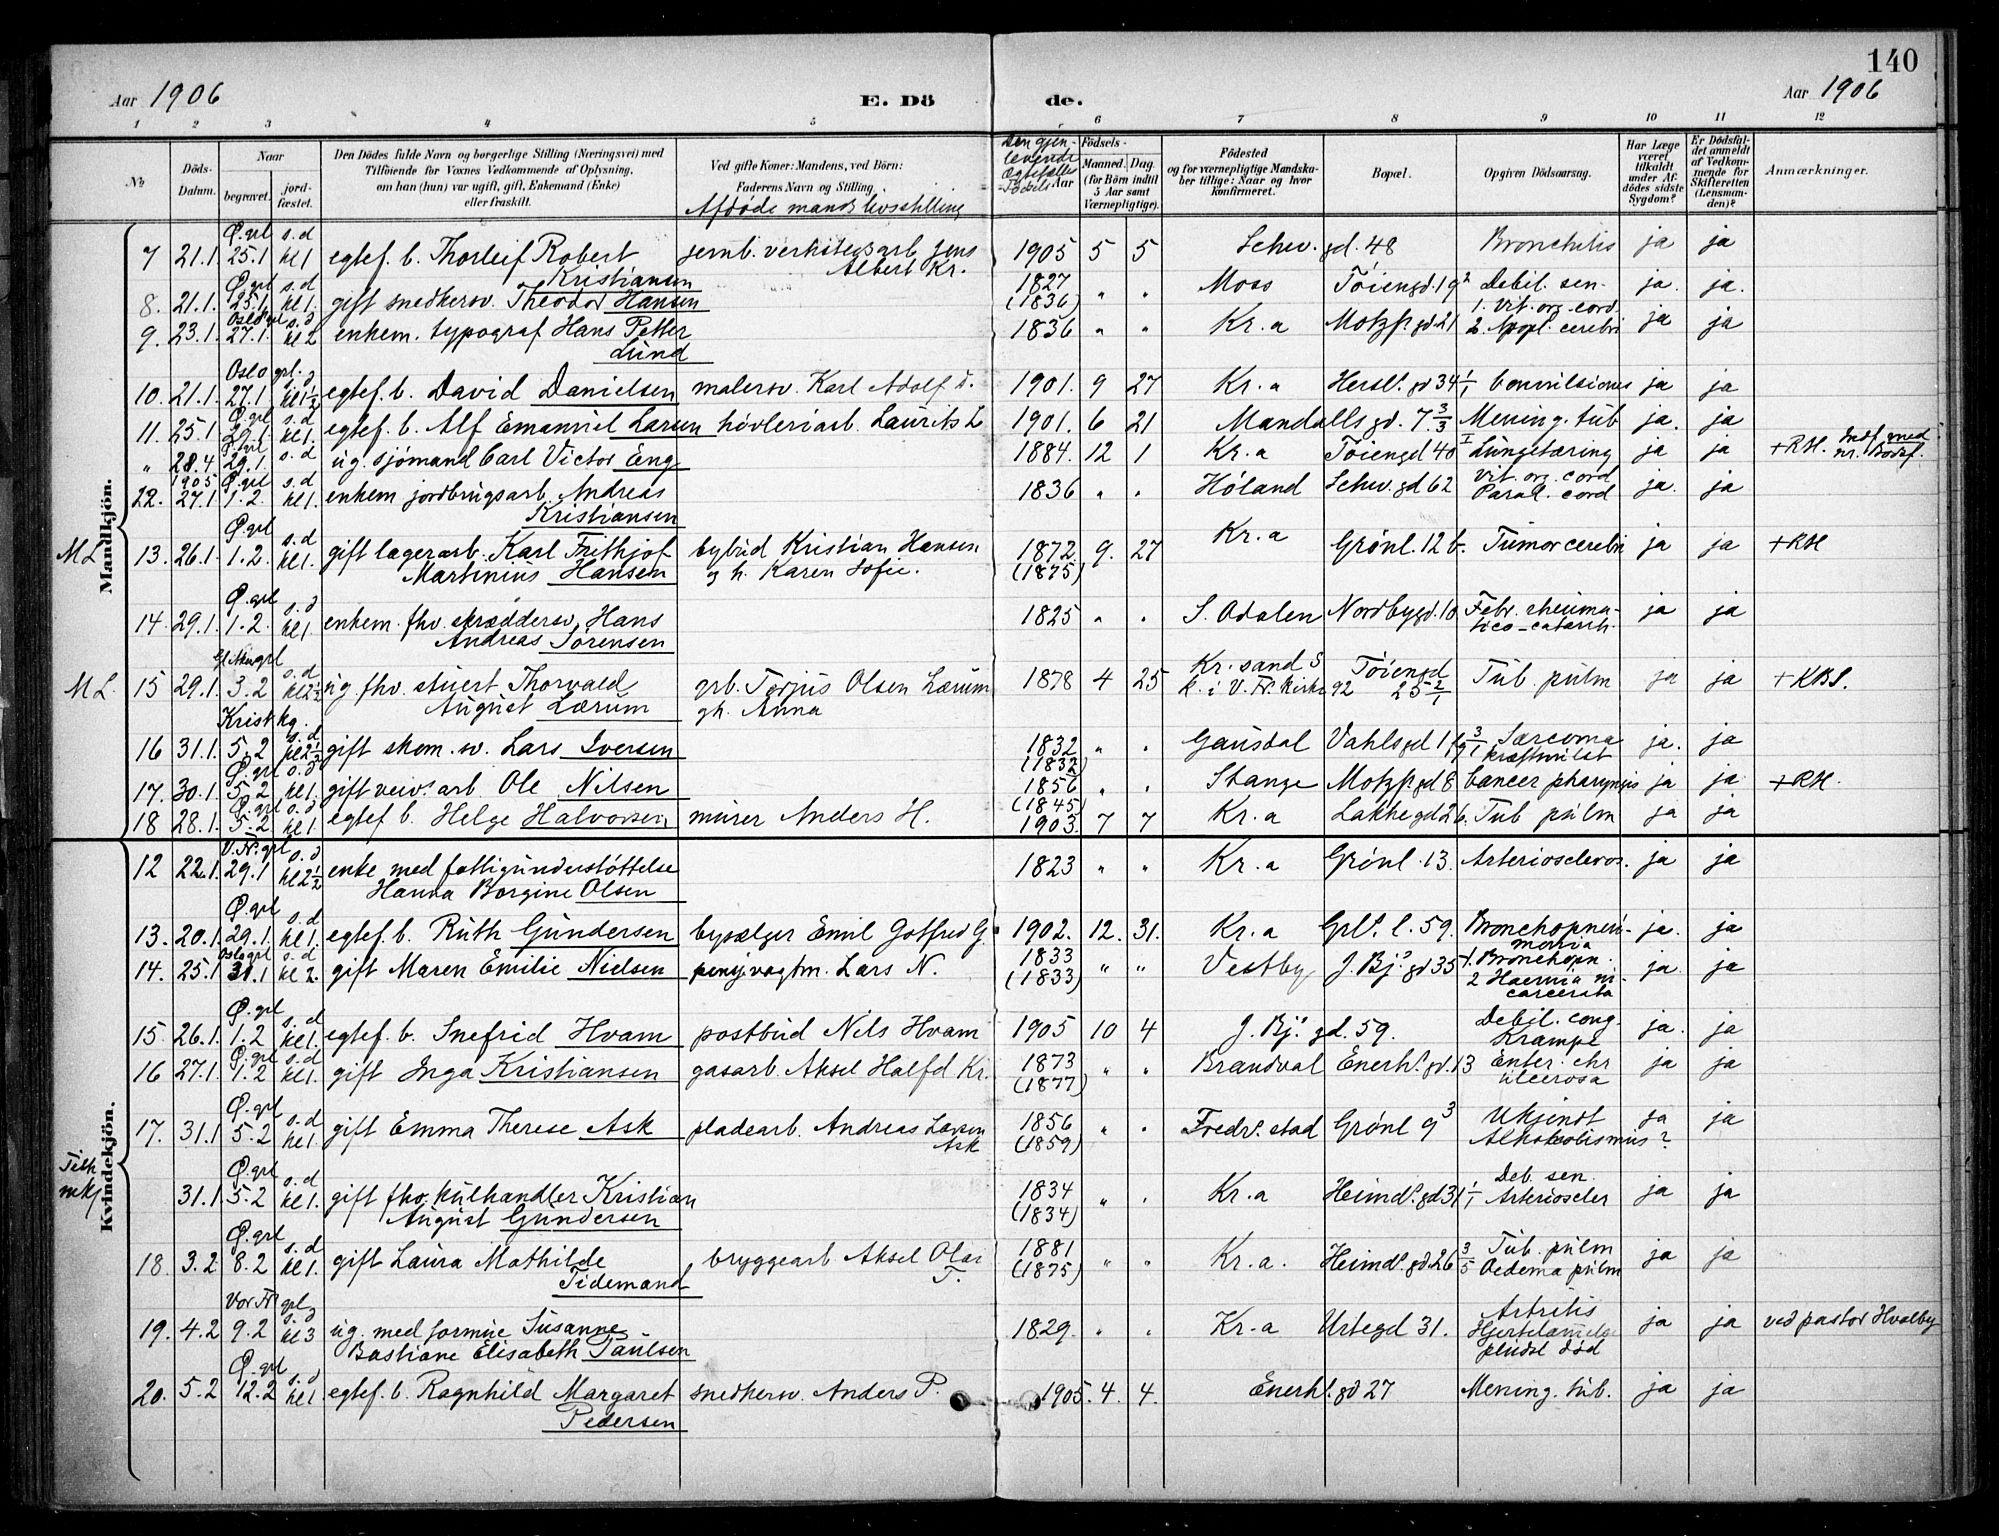 140
Aar 1906 E. Dö de. Aar 1906
1 2 3 4 5 6 7 8 9 10 11 12
№ Döds-Datum. Naar begravet. jord-fæstet. Den Dödes fulde Navn og borgerlige Stilling (Næringsvei) med Tilföiende for Voxnes Vedkommende af Oplysning, om han (hun) var ugift, gift, Enkemand (Enke) eller fraskilt. Ved gifte Koner: Mandens, ved Börn: Faderens Navn og Stilling. Afdøde mands livsstilling Den gjenlevende Ægtefælles Födsels Aar Födsels- Maaned. Dag. (for Börn indtil 5 Aar samt Værnepligtige). Födested og for værnepligtige Mandskaber tillige: Naar og hvor konfirmeret. Bopæl. Opgiven Dödsaarsag. Har Læge været tilkaldt under Afdödes sidste Sygdom? Er Dödsfaldet anmeldt af Vedkommende for Skifteretten (Lensmanden)? Anmærkninger.
Mandkjön.
Ø. grl s. d
7 21.1 25.1 kl 1 egtef. b. Thorleif Robert Kristiansen jernb. verkstedsarb Jens Albert Kr. 1905 5 5 Schw. gd. 48 Bronchitis ja ja
Ø. grl s. d
8. 21.1. 25.1. kl 1. gift snedkersv. Theodor Hansen 1827 (1836) " " Moss Tøiengd. 19 2 Debil. sen. ja. ja.
Oslo grl s. d
9. 23.1. 27.1. kl 2 enkem. typograf Hans Petter Lund 1836 " " Kr. a Motzf. gd. 21 1. Vit. org. cord. 2. Apopl. cerebri ja ja
Oslo grl. s. d
10. 21.1. 27.1 kl 1½ egtef. b. David Danielsen malersv. Karl Adolf D. 1901. 9 27 Kr. a Hersl. gd 34 1/1 Convulsiones ja ja
Ø. grl s. d
11. 25.1 29.1. kl 1. egtef. b. Alf Emanuel Larsen høvleriarb. Laurits L 1901. 6 21 Mandalls gd. 7. 3/3 Mening. tub ja. ja
Ø. grl s. d
" 28.4 1905 29.1. ug. sjømand Carl Victor Eng 1884. 12 1 Kr. a Tøiengd 40 I Lungetæring ja ja + RH.
Ø. grl s. d
22. 27.1 1.2. kl 1. enkem jordbrugsarb. Andreas Kristiansen 1836 " " Høland Schw. gd 62 Vit. org. cord Paral. cord ja. ja
Ø. grl s. d
M L 13. 26.1. 1.2. kl 1. gift lagerarb. Karl Frithjof Martinius Hansen bybud Kristian Hansen og h. Karen Sofie. 1872 (1875) 9. 27 Kr. a Grønl. 12 b. Tumor cerebri ja ja + RH
Ø. grl s. d
14. 29.1. 1.2. kl 1. enkem. fhv. skræddersv. Hans Andreas Sørensen 1825 " " S. Odalen Nordbygd. 10 Febr. rheumatico-catarrh. ja ja
Gl. Aker grl s. d
M L. 15 29.1. 3.2 kl 2½ ug fhv. stuert Thorvald August Lærum grb. Terjus Olsen Lærum og h. Anna 1878 4 25 Kr. sand S k. i V. Fr. kirke 92 Tøiengd 25 2/1 Tub. pulm ja ja + KBS.
Krist kg. s. d
16 31.1. 5.2 kl 2½ gift skom. sv. Lars Iversen 1832 (1832) " " Gausdal Vahlsgd 1 Sarcoma kræftmilst ja. ja
Ø. grl s. d
17. 30.1. 5.2 kl 1. gift veiv. arb Ole Nilsen 1856 (1845) " " Stange Motzf. gd 8 Cancer pharyngis ja ja + RH.
Ø. grl s. d
18 28.1. 5.2 kl 1. egtef b. Helge Halvorsen murer Anders H. 1903. 7 7 Kr. a Lakkegd 26. Tub pulm ja ja
Kvindekjön.
V. Fr. grl s. d
12 22.1. 29.1 kl 2½ enke med fattigunderstøttelse Hanna Borgine Olsen 1823 " " Kr. a Grønl. 13. Arterioscleros. ja ja
Ø. grl s. d
13. 20.1. 29.1. kl 1. egtef. b. Ruth Gundersen bysælger Emil Gotfred G. 1902. 12. 31. Kr. a Grl. l. 59. Bronchopneumonia ja. ja
Oslo grl s. d
14. 25.1 31.1 kl 2. gift Maren Emilie Nielsen Lars N. 1833 (1833) " " Vestby J. Bj. gd 35 1. Bronchopn. 2 Haernia incarcerata ja. ja
Ø. grl s. d
15. 26.1. 1.2 kl 1. egtef. b. Snefrid Hvam postbud Nils Hvam 1905 10 4 J. Bj. gd. 59. Debil. cong. Krampe ja. ja
Ø. grl s. d
16 27.1. 1.2 kl 1. gift Inga Kristiansen gasarb. Aksel Halfd Kr. 1873 (1877) " " Brandval Enerh. gd. 13 Enter. chr ulcerosa ja ja
Ø. grl s. d
17. 31.1 5.2 kl 1. gift Emma Therese Ask pladearb. Andreas Larsen Ask 1856 (1859) " " Fredr. stad Grønl 9 3 Ukjendt Alkoholismus? ja ja
Ø. grl s. d
31.1 5.2 kl 1. gift fhv. kulhandler Kristian August Gundersen 1834 (1834) " " Kr. a Heimd. gd 31 1/1 Deb. sen. Arterioscler ja ja
Ø. grl s. d
18. 3.2 8.2 kl 1. gift Laura Mathilde Tidemand bryggearb Aksel Olai T. 1881 (1875) " " Kr. a. Heimd. gd. 26 3/5 Tub. pulm Oedema pulm ja ja
Vor Fr grl s. d
19. 4.2 9.2 kl 3 ug. med formue Susanne Bastiane Elisabeth Paulsen 1829. " " Kr. a Urtegd 31. Artritis Hjertelammelse pludsl død ja ja ved pastor Hvalby
Ø. grl s. d
20. 5.2 12.2 kl 1 egtef. b. Ragnhild Margaret Pedersen snedkersv. Anders P. 1905. 4. 4. Enerh. gd 27 Mening. tub. ja ja